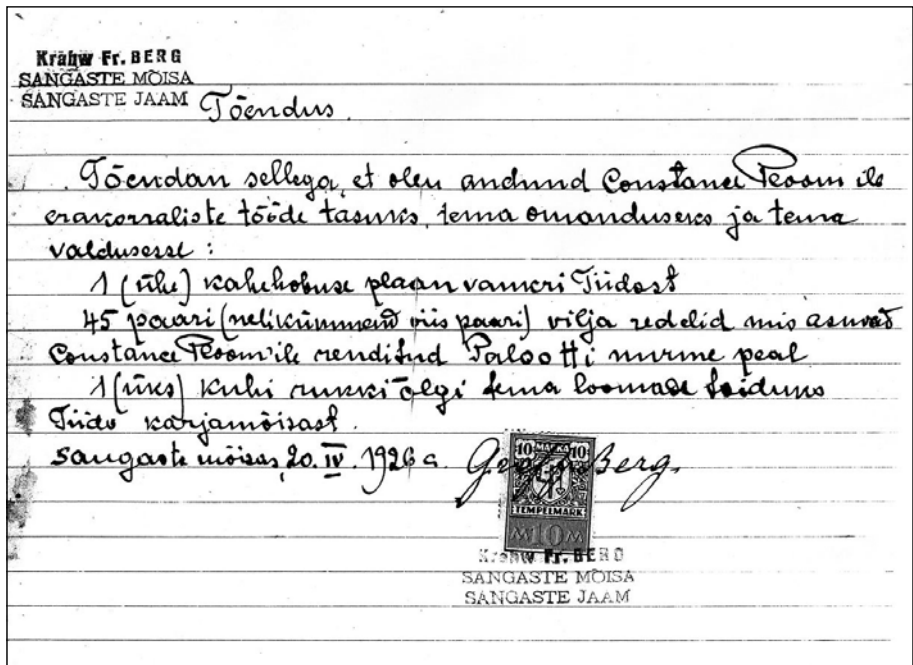 Krahw Fr. BERG
SANGASTE MÕISA
SANGASTE JAAM
Tõendus.
Tõendan sellega, et olen andnud Constance Room ile
erakorraliste tööde tasuks, tema omanduseks ja tema
valdusesse :
1 (ühe) kahehobuse plaanvankri Tiidost
45 paari (nelikümmend viis paari) vilja redelid mis asuvad
Constance Room'ile renditud Palootti nurme peal
1 (üks) kuhi rukki õlgi tema loomade toiduks
Tiido karjamõisast.
Sangaste mõisas, 20. IV. 1926 a. Berg.
10 MARKA 10
TEMPELMARK
M 10 M
Krahw Fr. BERG
SANGASTE MÕISA
SANGASTE JAAM